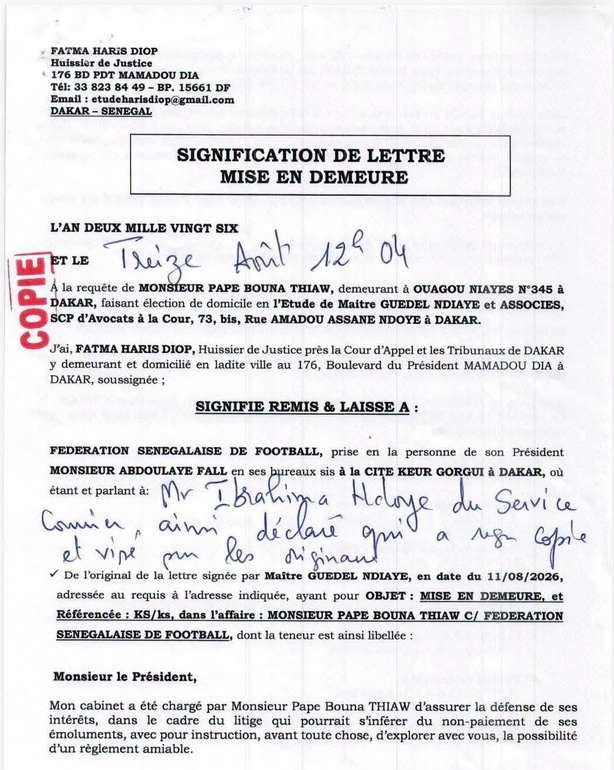 FATMA HARIS DIOP
Huissier de Justice
176 BD PDT MAMADOU DIA
Tél: 33 823 84 49 – BP. 15661 DF
Email : etudeharisdiop@gmail.com
DAKAR – SENEGAL
SIGNIFICATION DE LETTRE
MISE EN DEMEURE
L'AN DEUX MILLE VINGT SIX
ET LE Treize Août 12h 04
COPIE
A la requête de MONSIEUR PAPE BOUNA THIAW, demeurant à OUAGOU NIAYES N°345 à
DAKAR, faisant élection de domicile en l'Etude de Maitre GUEDEL NDIAYE et ASSOCIES,
SCP d'Avocats à la Cour, 73, bis, Rue AMADOU ASSANE NDOYE à DAKAR.
J'ai, FATMA HARIS DIOP, Huissier de Justice près la Cour d'Appel et les Tribunaux de DAKAR
y demeurant et domicilié en ladite ville au 176, Boulevard du Président MAMADOU DIA à
DAKAR, soussignée ;
SIGNIFIE REMIS & LAISSE A :
FEDERATION SENEGALAISE DE FOOTBALL, prise en la personne de son Président
MONSIEUR ABDOULAYE FALL en ses bureaux sis à la CITE KEUR GORGUI à DAKAR, où
étant et parlant à: Mr Ibrahima Ndoye du Service
Courrier, ainsi déclaré qui a reçu copie
et visé sur les originaux
✓ De l'original de la lettre signée par Maître GUEDEL NDIAYE, en date du 11/08/2026,
adressée au requis à l'adresse indiquée, ayant pour OBJET : MISE EN DEMEURE, et
Référencée : KS/ks, dans l'affaire : MONSIEUR PAPE BOUNA THIAW C/ FEDERATION
SENEGALAISE DE FOOTBALL, dont la teneur est ainsi libellée :
Monsieur le Président,
Mon cabinet a été chargé par Monsieur Pape Bouna THIAW d'assurer la défense de ses
intérêts, dans le cadre du litige qui pourrait s'inférer du non-paiement de ses
émoluments, avec pour instruction, avant toute chose, d'explorer avec vous, la possibilité
d'un règlement amiable.